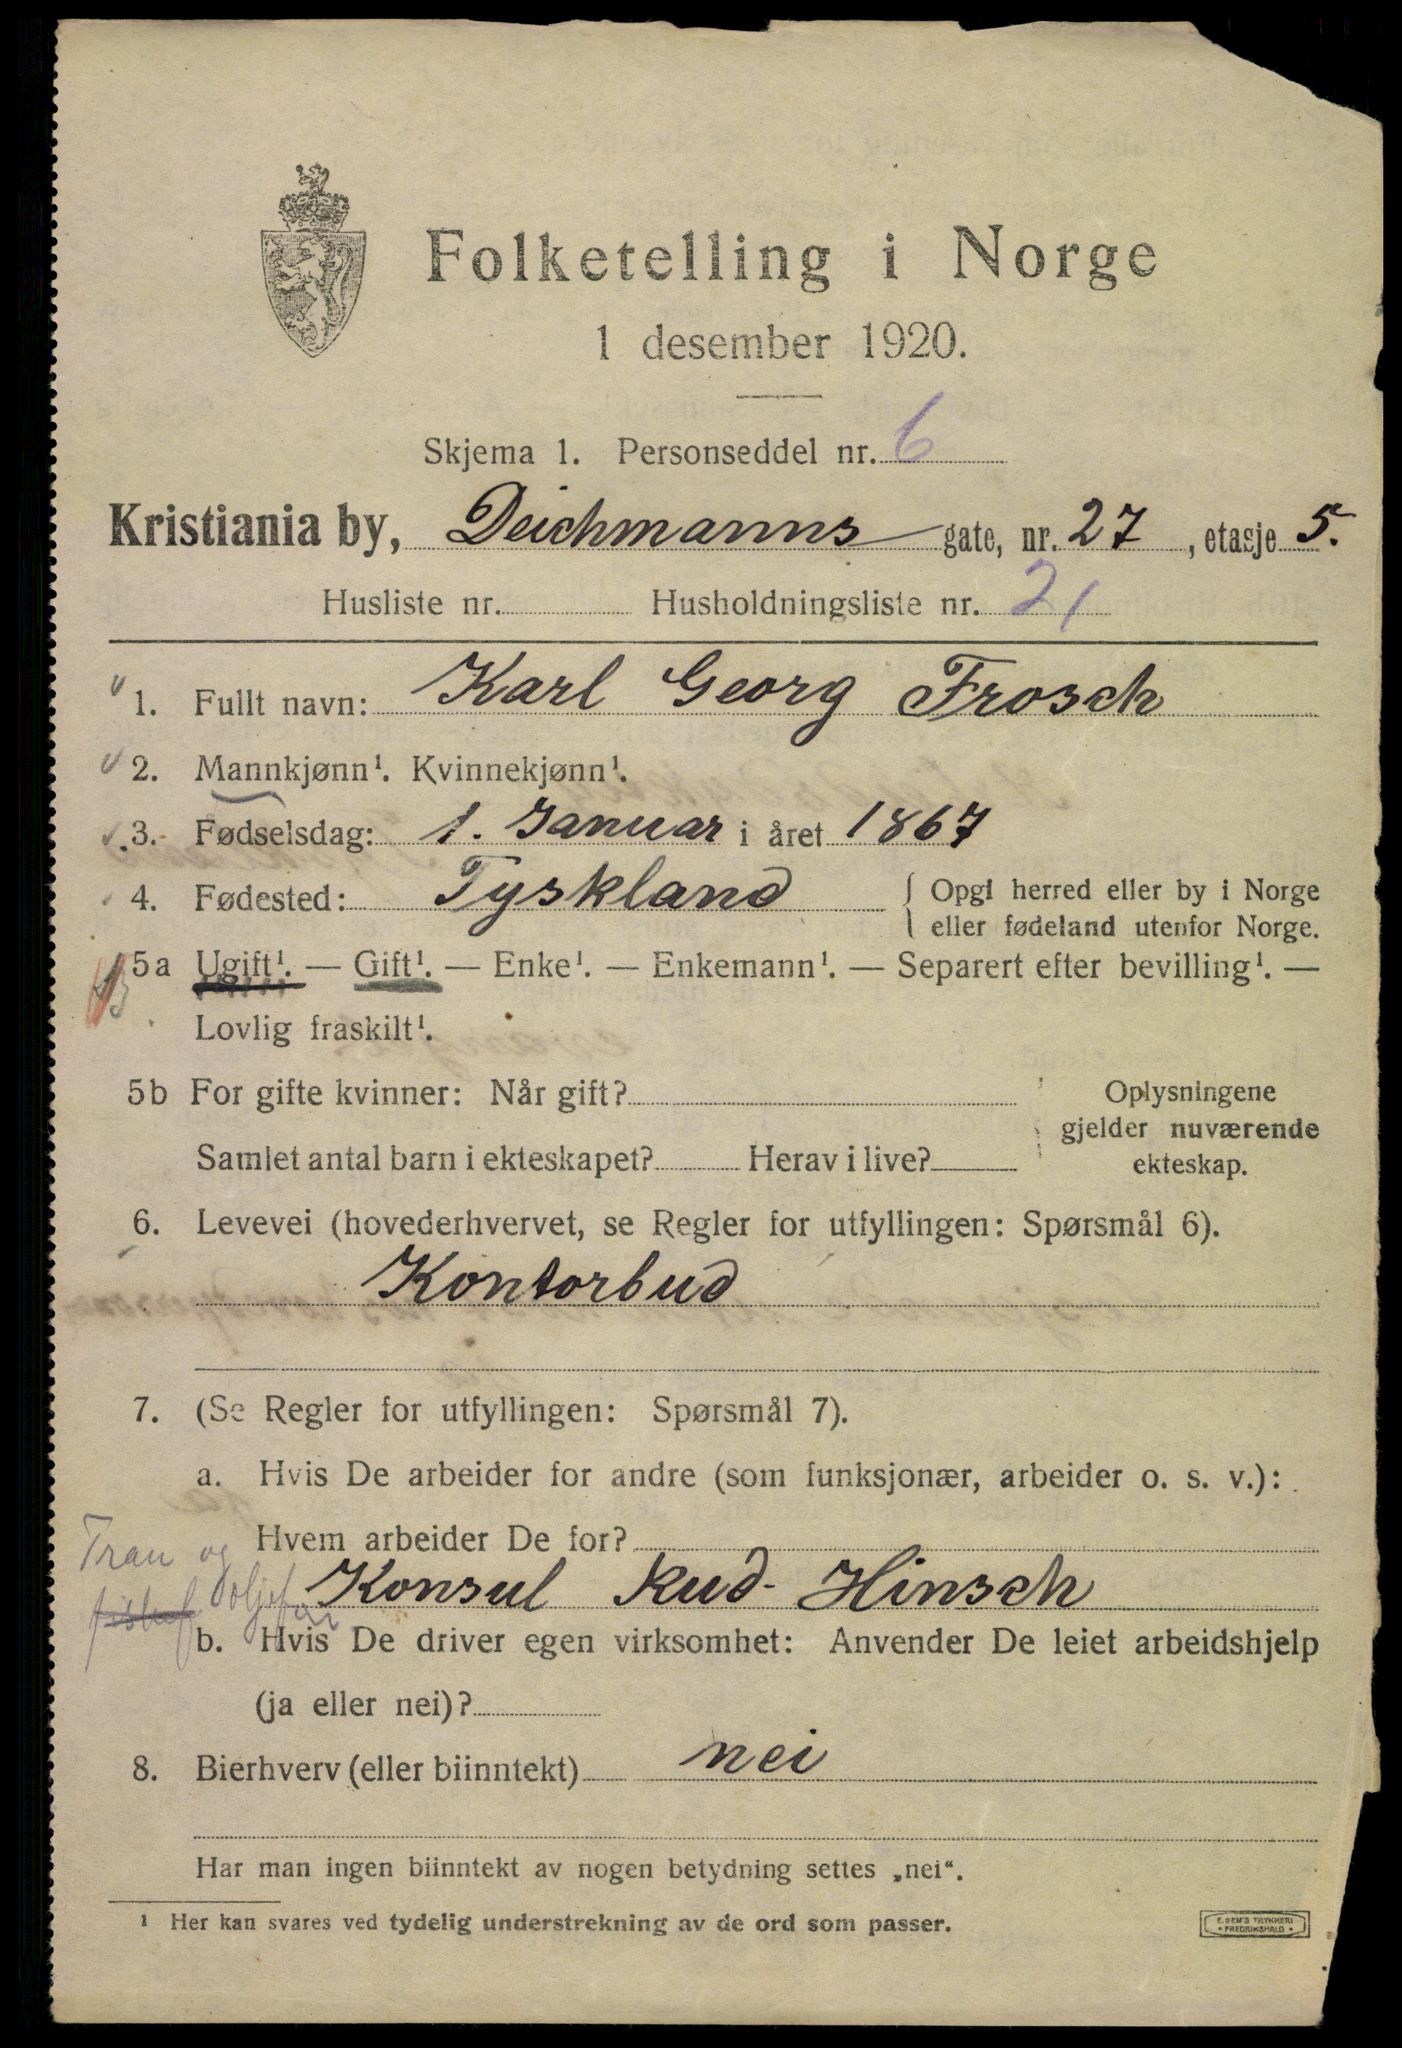 Folketelling i Norge
1 desember 1920.
Skjema 1. Personseddel nr. 6
Kristiania by, Deichmanns gate, nr. 27, etasje 5.
Husliste nr. Husholdningsliste nr. 21
1. Fullt navn: Karl Georg Frosch
2. Mannkjønn¹. Kvinnekjønn¹.
3. Fødselsdag: 1. Januar i året 1867
4. Fødested: Tyskland { Opgi herred eller by i Norge
eller fødeland utenfor Norge.
5a Ugift¹. — Gift¹. — Enke¹. — Enkemann¹. — Separert efter bevilling¹. —
Lovlig fraskilt¹.
5b For gifte kvinner: Når gift? Oplysningene
gjelder nuværende
Samlet antal barn i ekteskapet? Herav i live? ekteskap.
6. Levevei (hovederhvervet, se Regler for utfyllingen: Spørsmål 6).
Kontorbud
7. (Se Regler for utfyllingen: Spørsmål 7).
a. Hvis De arbeider for andre (som funksjonær, arbeider o. s. v.):
Hvem arbeider De for?
Tran og
Konsul Rud. Hinsch
b. Hvis De driver egen virksomhet: Anvender De leiet arbeidshjelp
(ja eller nei)?
8. Bierhverv (eller biinntekt) nei
Har man ingen biinntekt av nogen betydning settes „nei“.
¹ Her kan svares ved tydelig understrekning av de ord som passer.
E. SEM'S TRYKKERI
• FREDRIKSHALD •